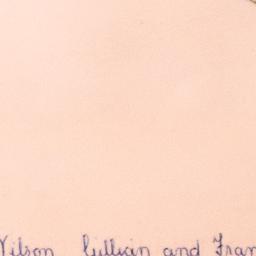 Wilson Gillian and Fran